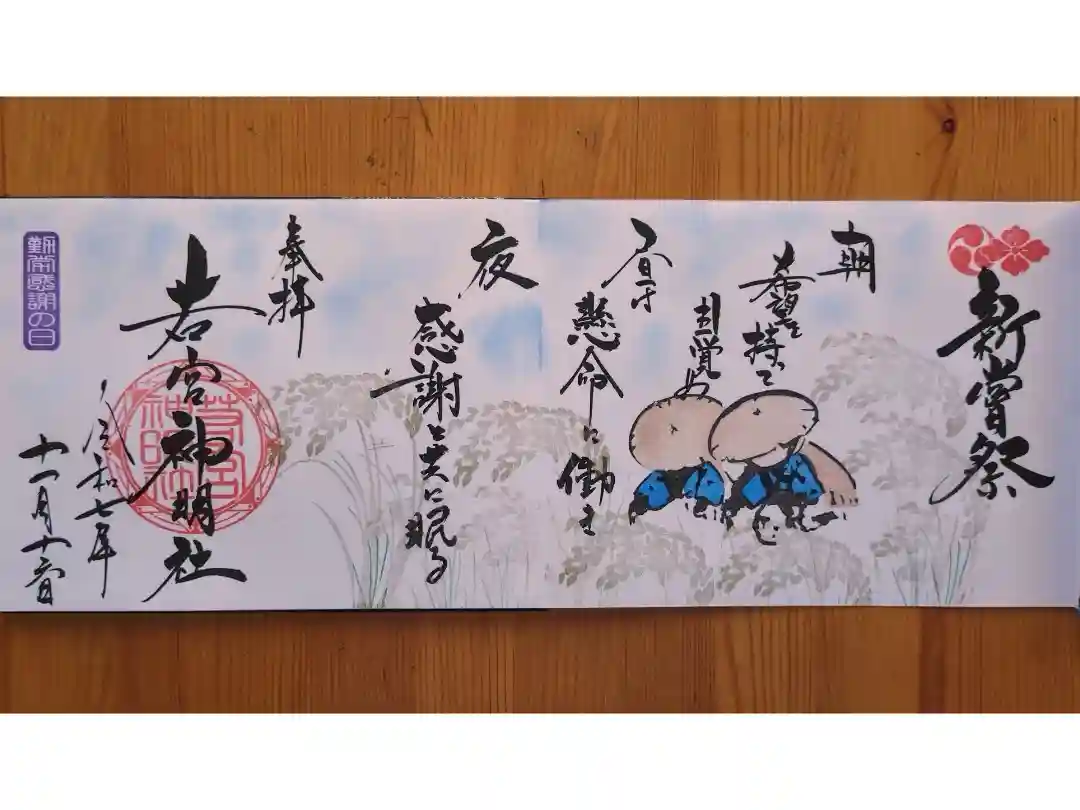 新嘗祭
朝
希望を持って
目覚め
昼は
懸命に働き
夜
感謝と共に眠る
奉拝
若宮神明社
令和七年
十一月
勤労感謝の日